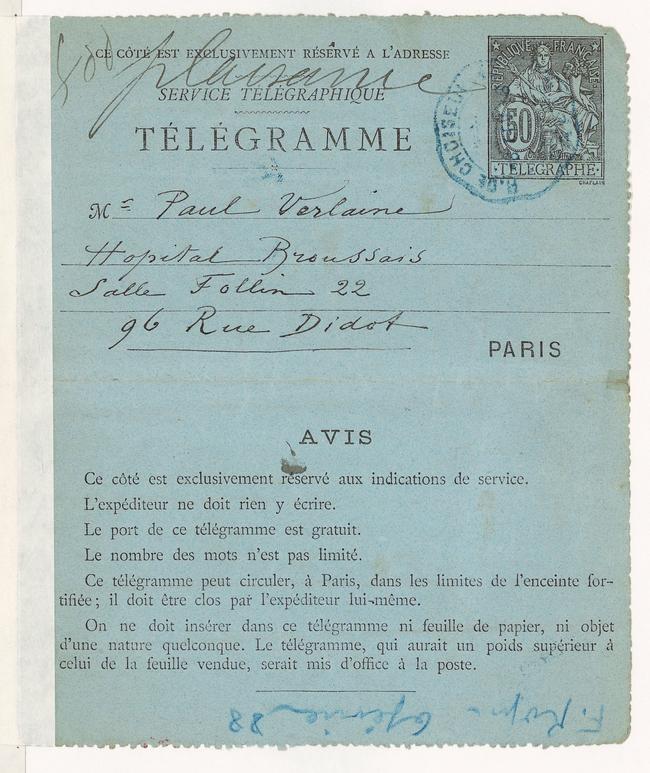 CE CÔTÉ EST EXCLUSIVEMENT RÉSERVÉ A L'ADRESSE
plaisance
SERVICE TÉLÉGRAPHIQUE
TÉLÉGRAMME
RÉPUBLIQUE FRANÇAISE
50
TÉLÉGRAPHE
CHAPLAIN
R. DE CHOISEUL
Mr Paul Verlaine
Hopital Broussais
Salle Follin 22
96 Rue Didot
PARIS
AVIS
Ce côté est exclusivement réservé aux indications de service.
L'expéditeur ne doit rien y écrire.
Le port de ce télégramme est gratuit.
Le nombre des mots n'est pas limité.
Ce télégramme peut circuler, à Paris, dans les limites de l'enceinte for-
tifiée; il doit être clos par l'expéditeur lui-même.
On ne doit insérer dans ce télégramme ni feuille de papier, ni objet
d'une nature quelconque. Le télégramme, qui aurait un poids supérieur à
celui de la feuille vendue, serait mis d'office à la poste.
88